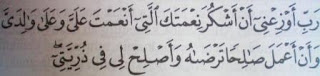 رَبِّ أَوْزِعْنِىٓ أَنْ أَشْكُرَ نِعْمَتَكَ ٱلَّتِىٓ أَنْعَمْتَ عَلَىَّ وَعَلَىٰ وَٰلِدَىَّ
وَأَنْ أَعْمَلَ صَٰلِحًا تَرْضَىٰهُ وَأَصْلِحْ لِى فِى ذُرِّيَّتِىٓ ۖ